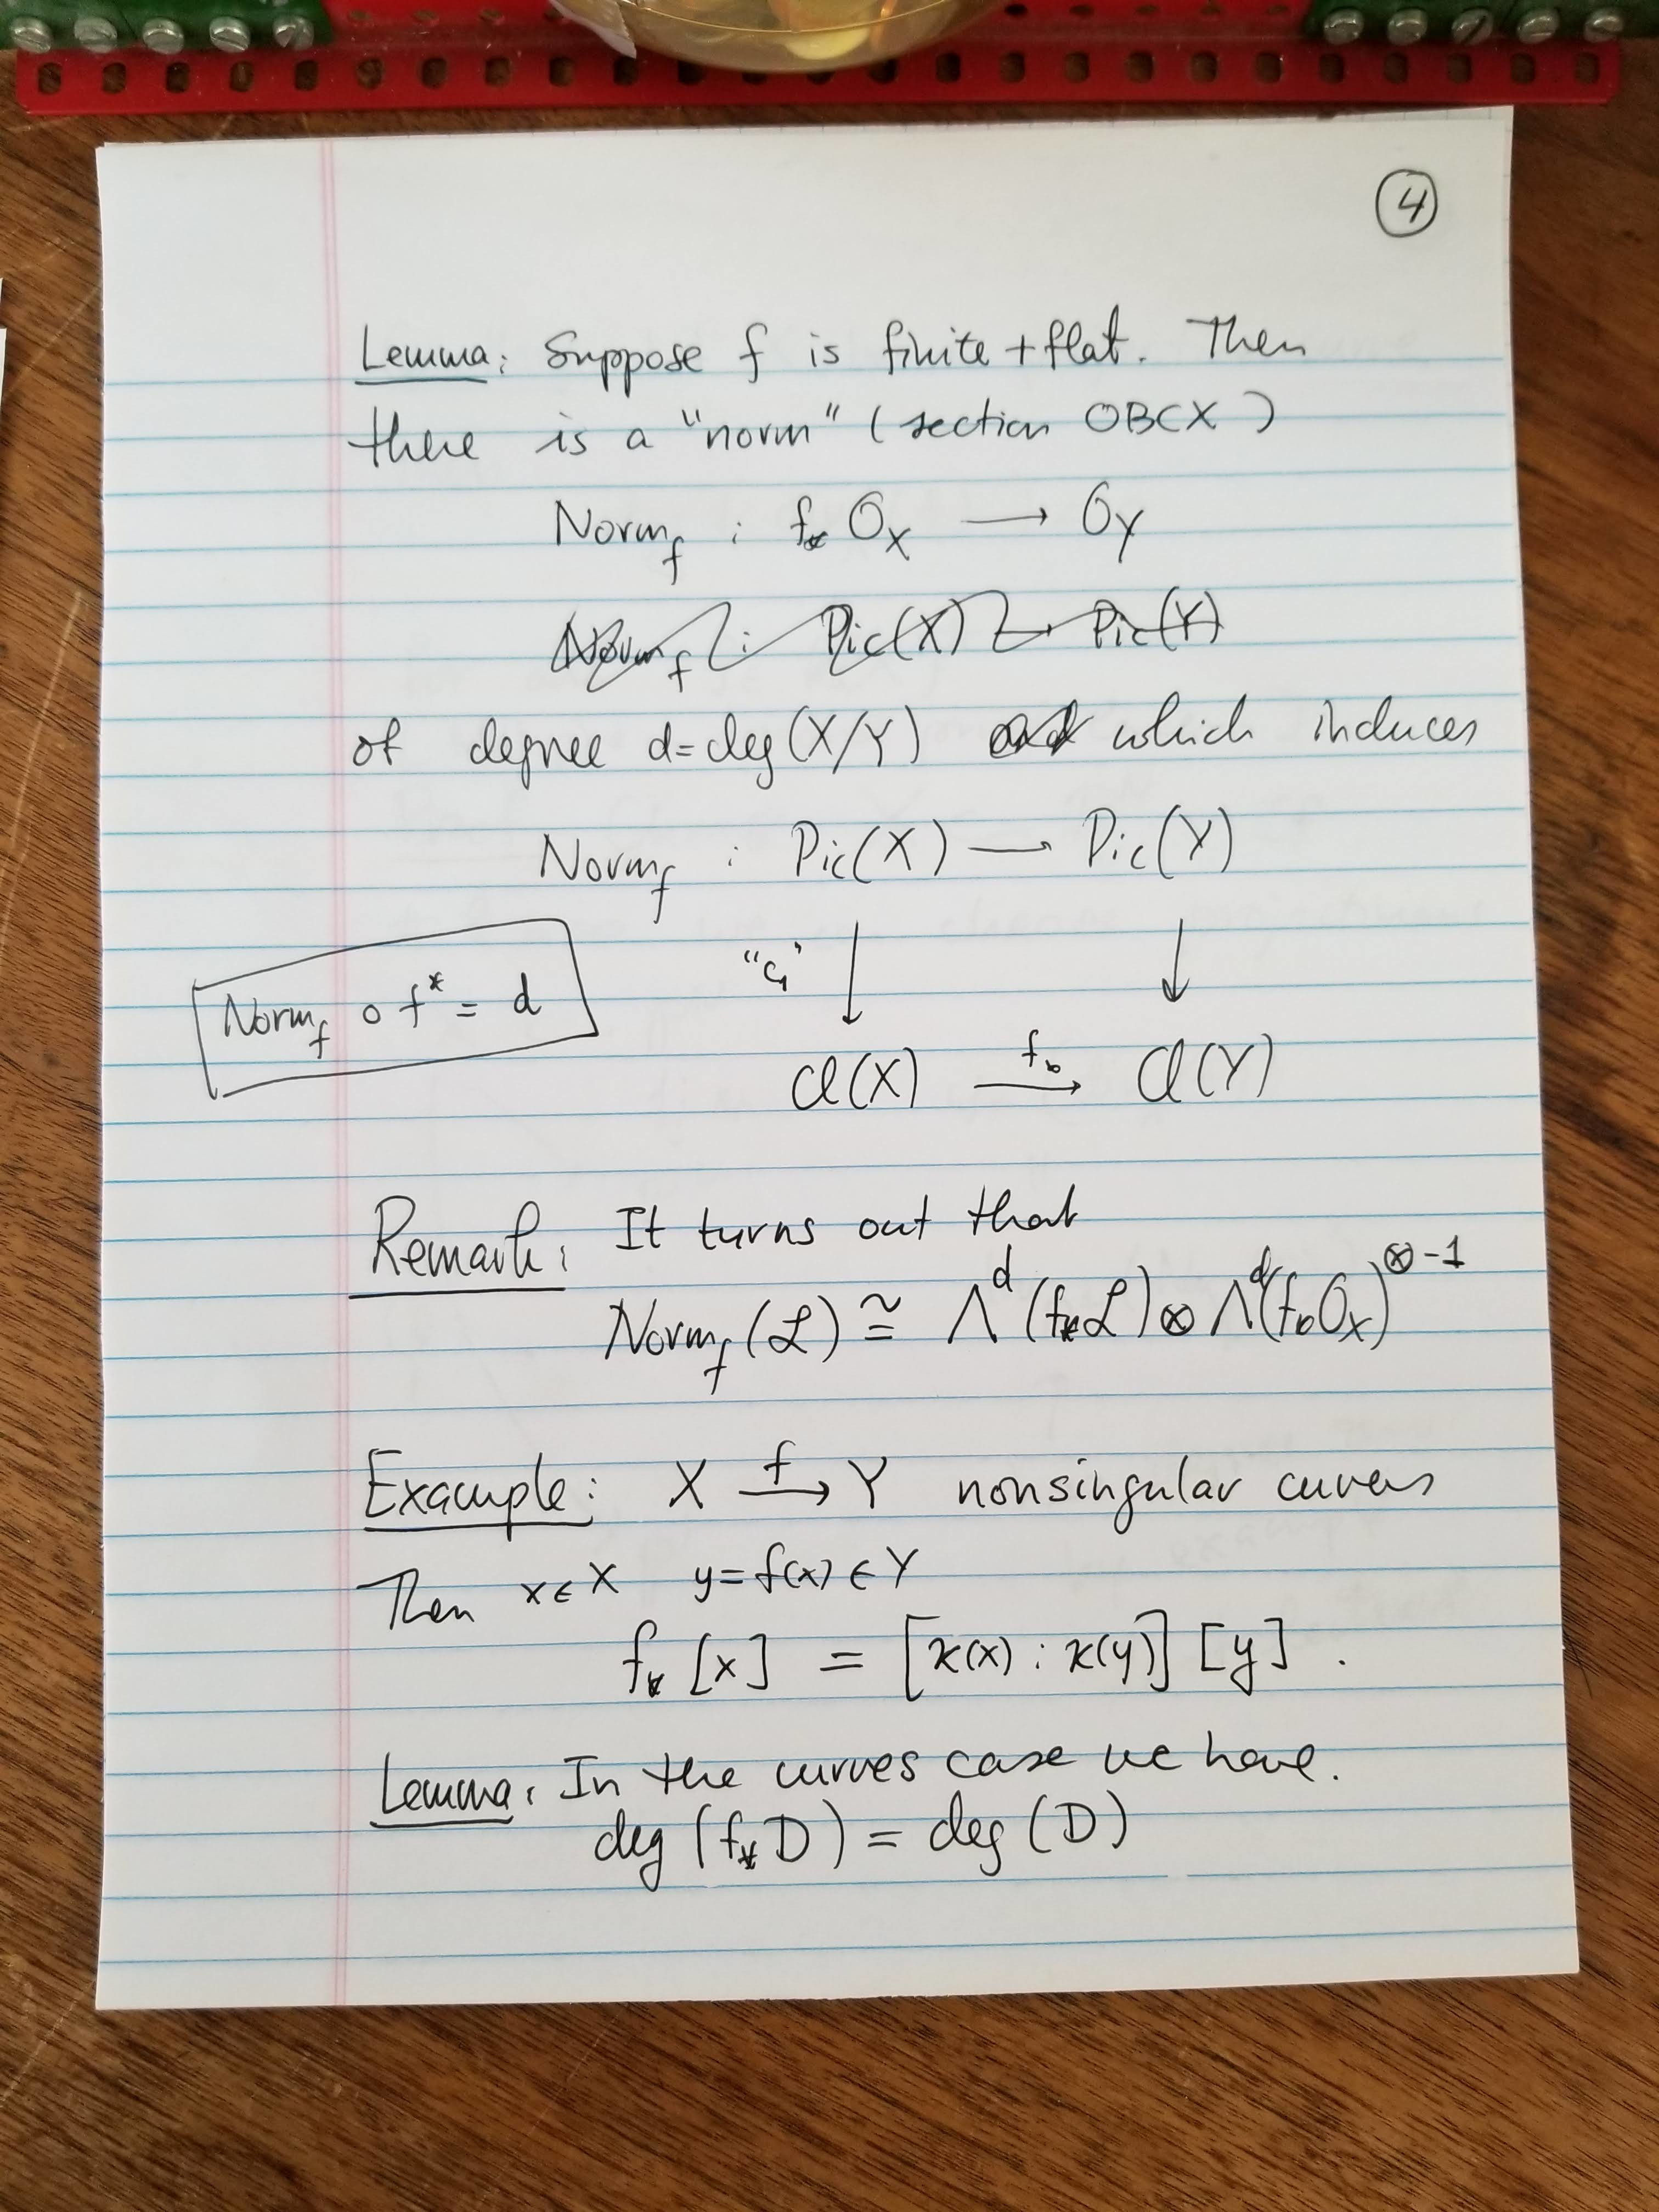 4
Lemma: Suppose f is finite + flat. Then
there is a "norm" (section 0BCX)
Norm_f : f_* O_X ⟶ O_Y
Norm_f : Pic(X) → Pic(Y)
of degree d = deg(X/Y) and which induces
Norm_f : Pic(X) ⟶ Pic(Y)
"c_1" ↓ ↓
Norm_f ∘ f^* = d
Cl(X) —f_*→ Cl(Y)
Remark: It turns out that
Norm_f(ℒ) ≅ Λ^d(f_*ℒ) ⊗ Λ^d(f_*O_X)^{⊗-1}
Example: X —f→ Y nonsingular curves
Then x ∈ X y = f(x) ∈ Y
f_*[x] = [κ(x) : κ(y)] [y].
Lemma: In the curves case we have.
deg(f_*D) = deg(D)